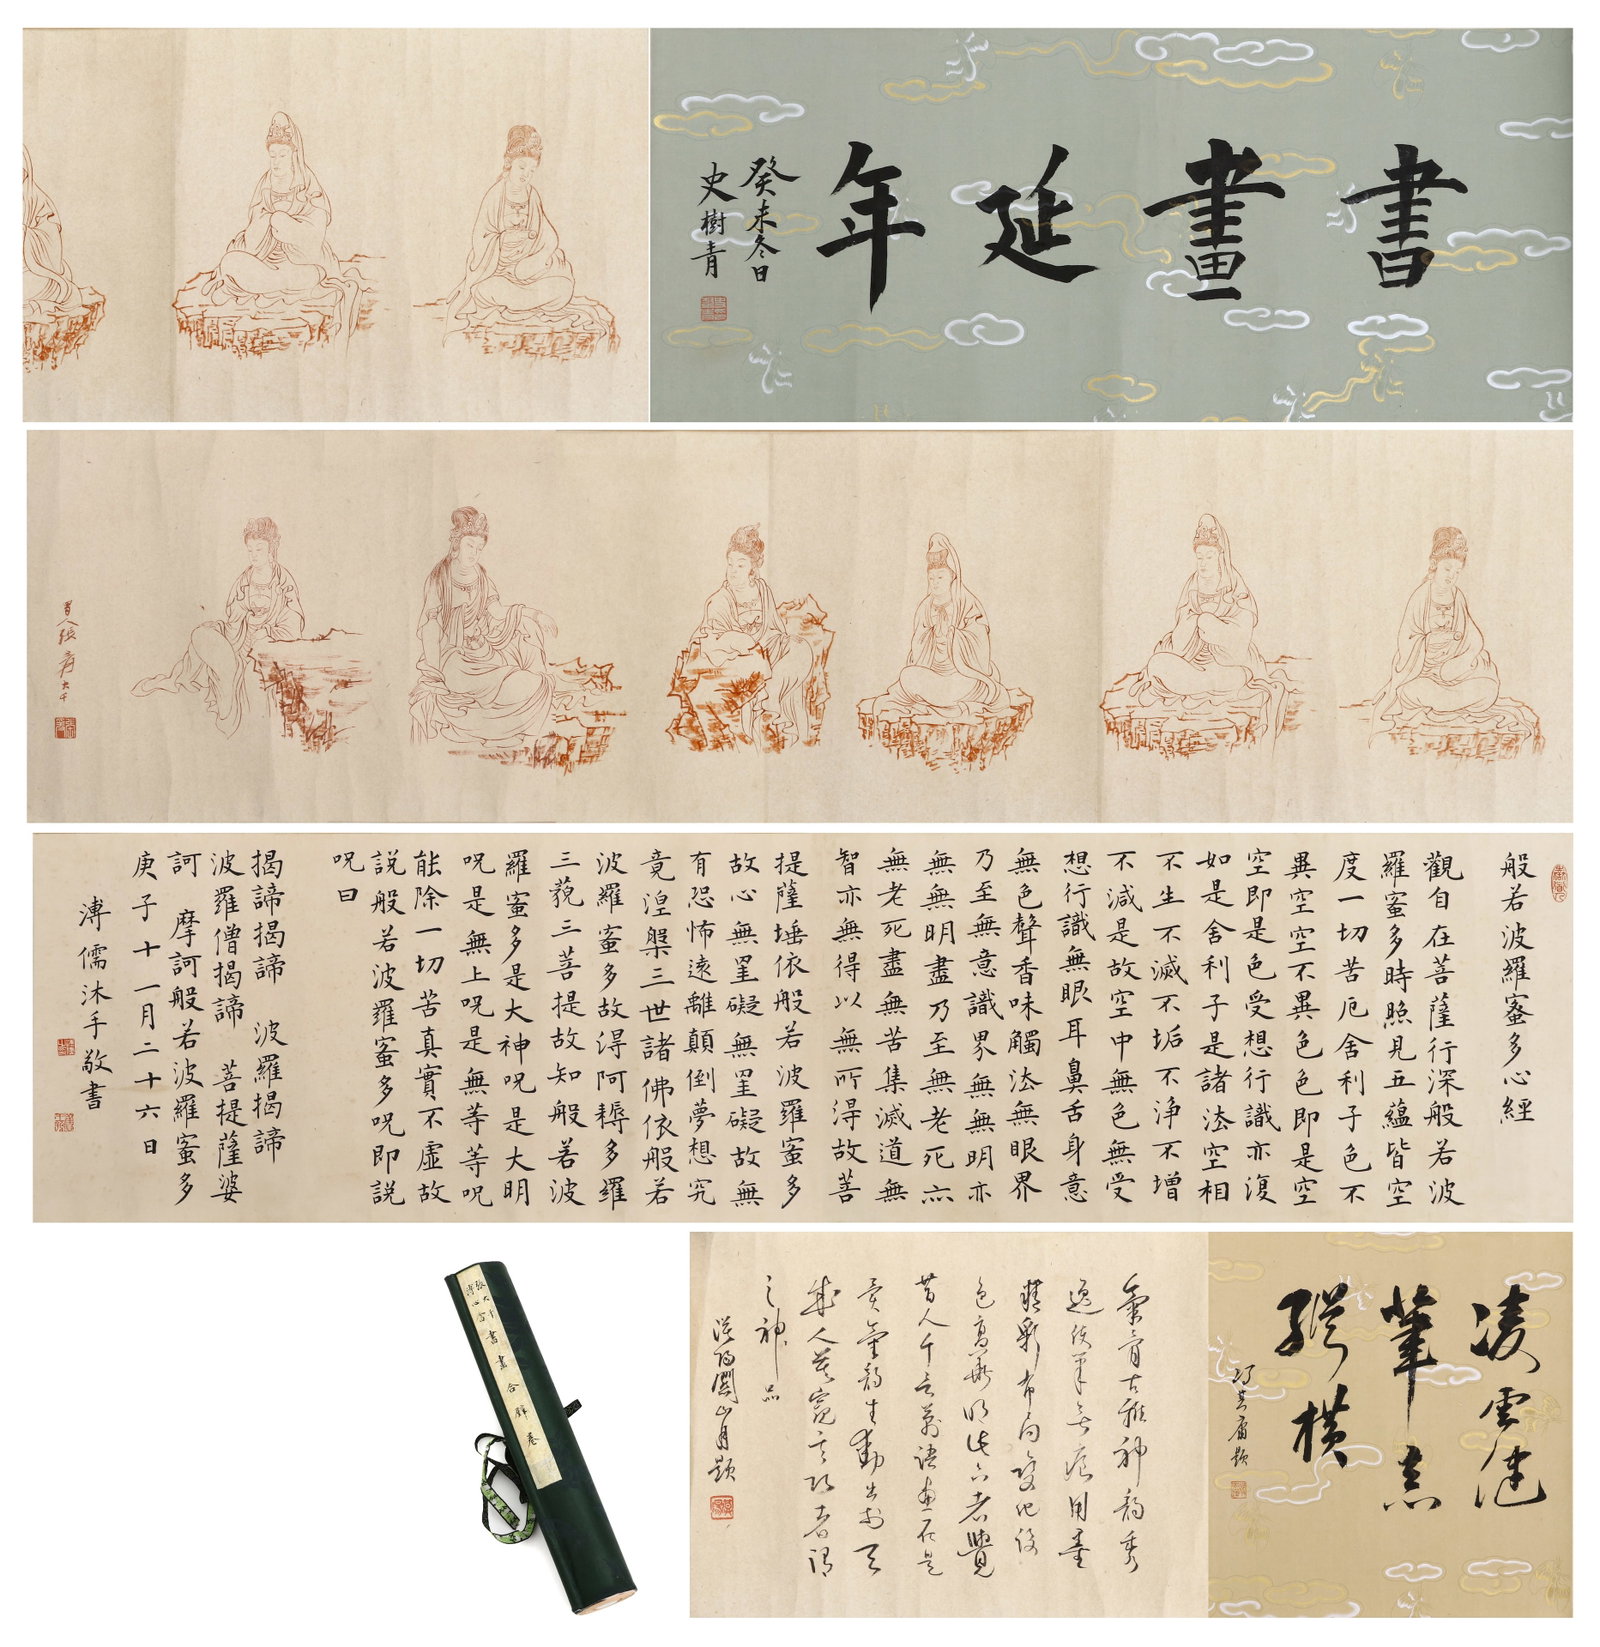 書畫延年
癸未冬日
史樹青
蜀人張爰大千
般若波羅蜜多心經
觀自在菩薩行深般若波
羅蜜多時照見五蘊皆空
度一切苦厄舍利子色不
異空空不異色色即是空
空即是色受想行識亦復
如是舍利子是諸法空相
不生不滅不垢不淨不增
不減是故空中無色無受
想行識無眼耳鼻舌身意
無色聲香味觸法無眼界
乃至無意識界無無明亦
無無明盡乃至無老死亦
無老死盡無苦集滅道無
智亦無得以無所得故菩
提薩埵依般若波羅蜜多
故心無罣礙無罣礙故無
有恐怖遠離顛倒夢想究
竟涅槃三世諸佛依般若
波羅蜜多故得阿耨多羅
三藐三菩提故知般若波
羅蜜多是大神呪是大明
呪是無上呪是無等等呪
能除一切苦真實不虛故
說般若波羅蜜多呪即說
呪曰
揭諦揭諦 波羅揭諦
波羅僧揭諦 菩提薩婆
訶 摩訶般若波羅蜜多
庚子十一月二十六日
溥儒沐手敬書
凌雲健
筆意
縱橫
馮其庸題
氣骨古雅神韻秀
逸使筆無痕用墨
精彩布局變化設
色高華明此六者覺
昔人千言萬語盡在是
矣氣韻生動出於天
成人莫窺其巧者謂
之神品
漢陽關山月題
張大千
溥心畬
書畫合璧卷